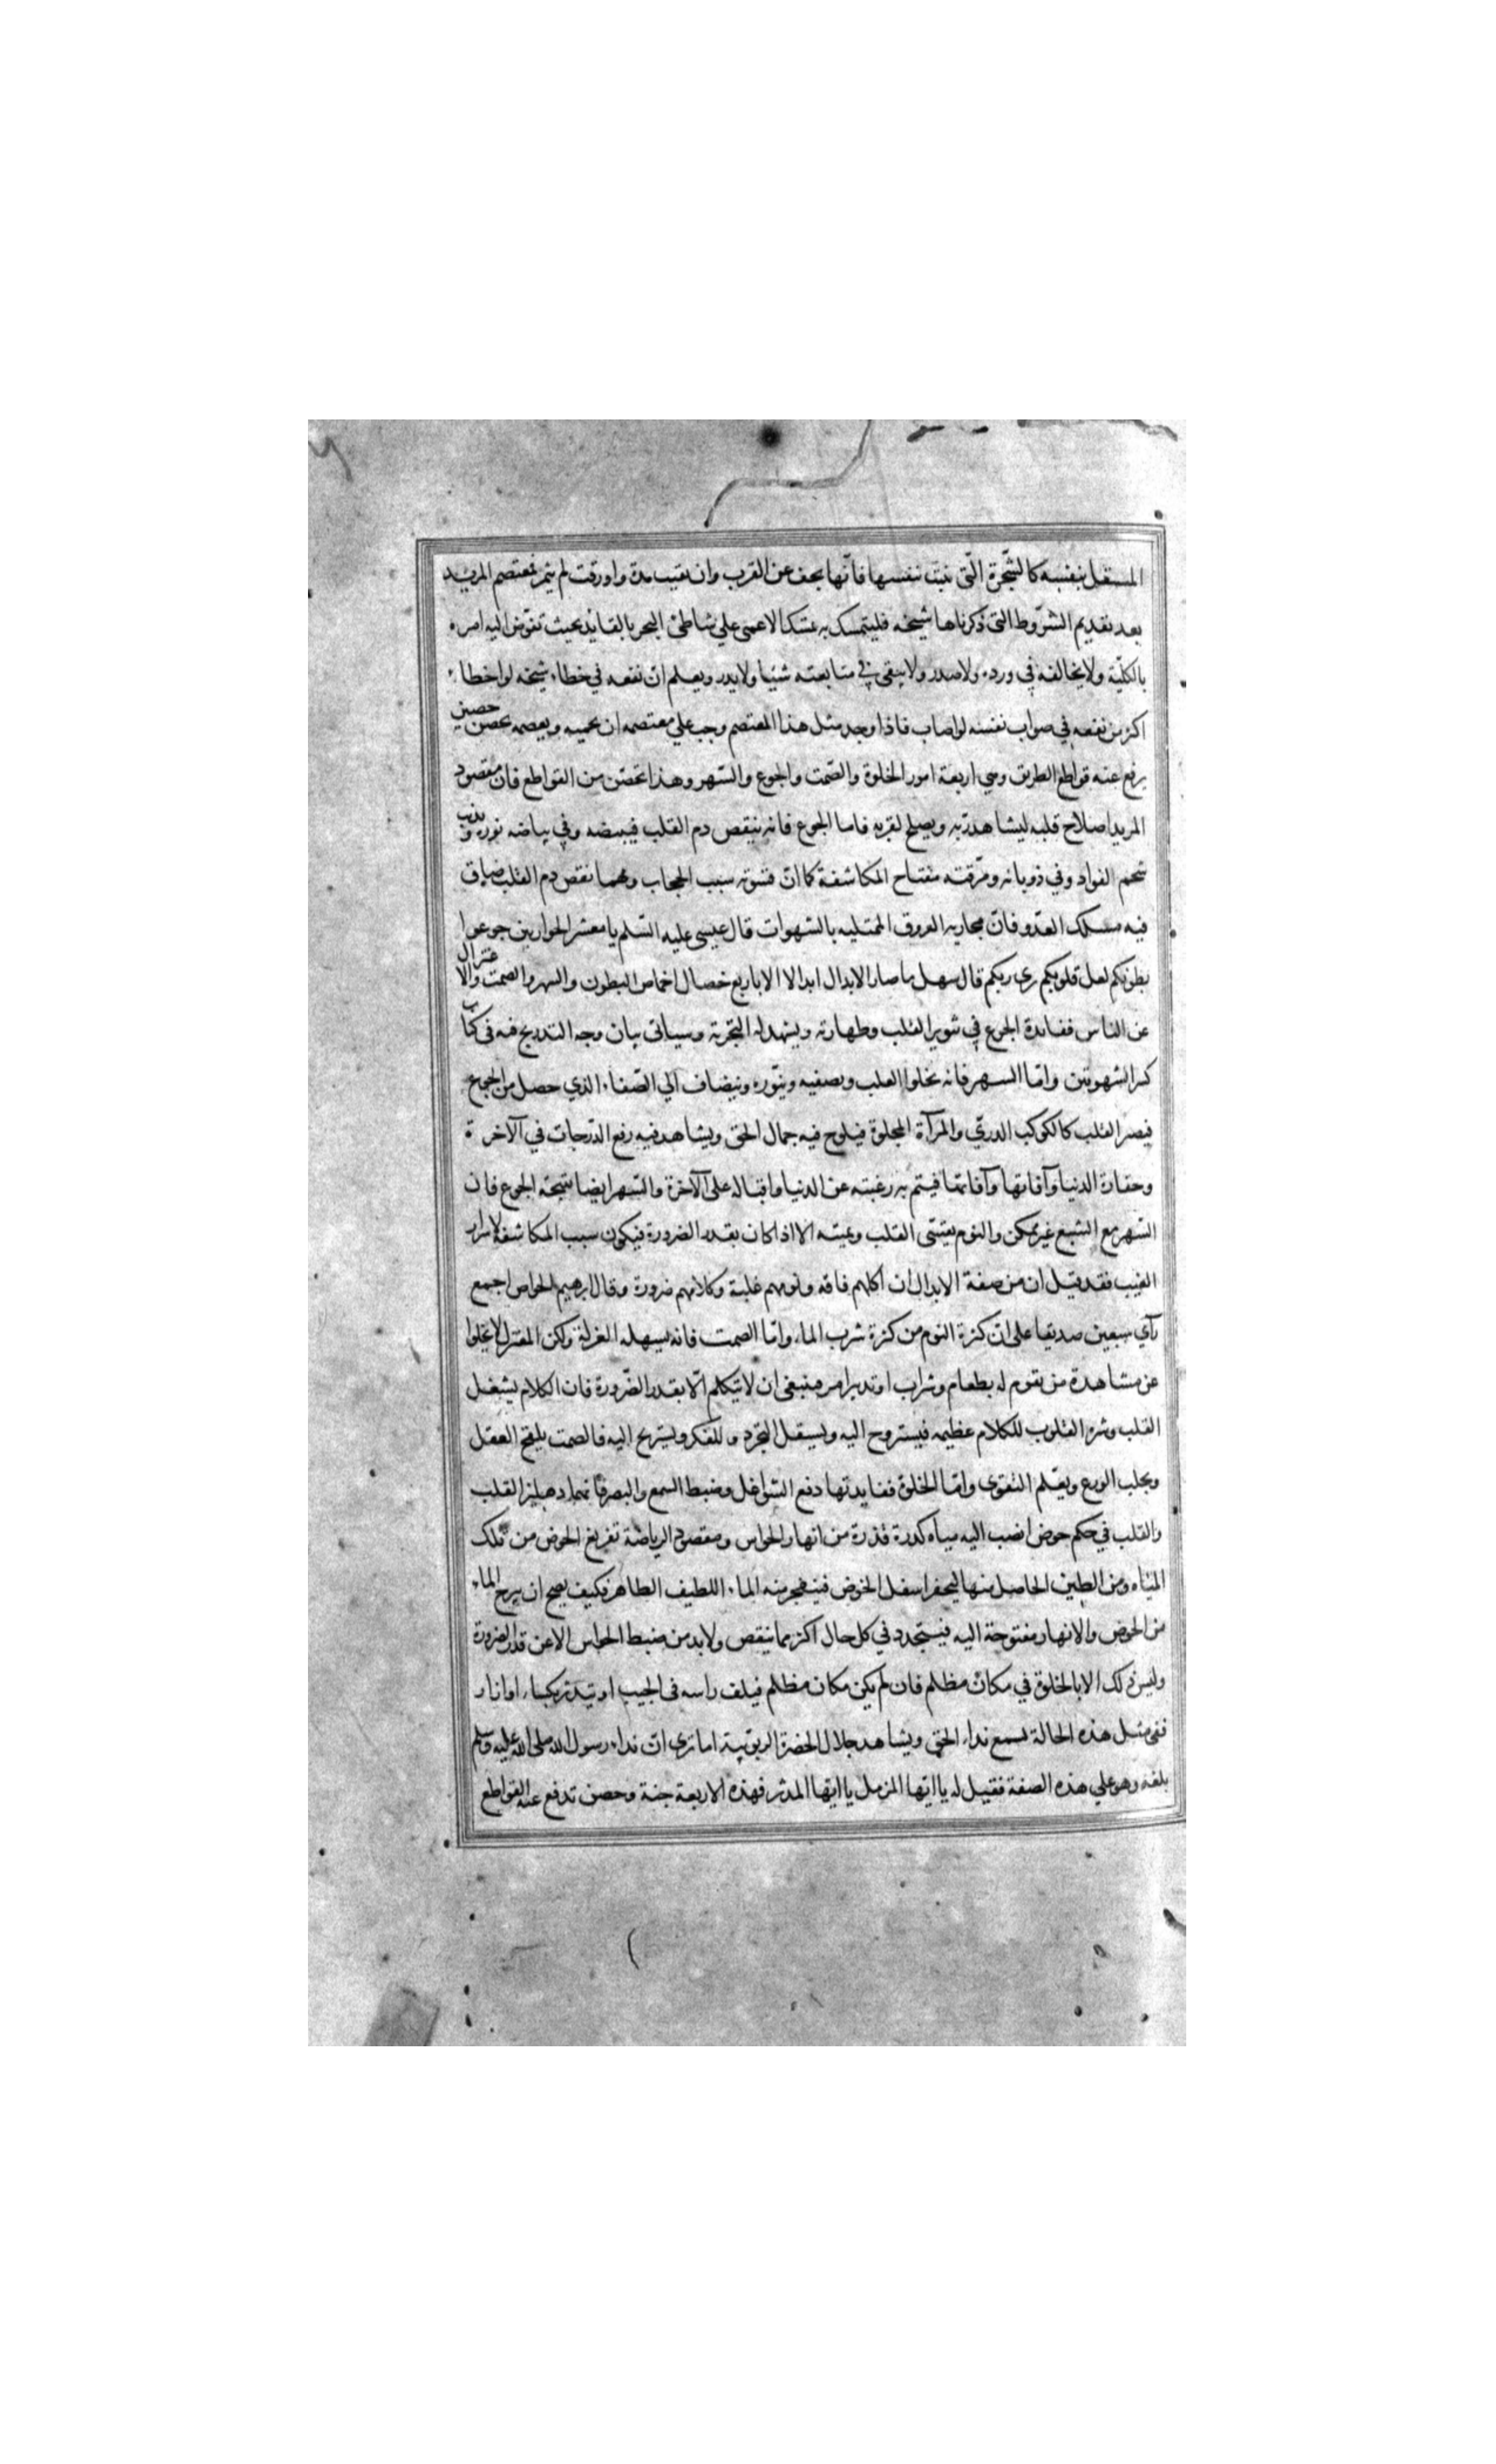 المستقل بنفسه كالشّجرة الّتى تنبت بنفسها فانّها يجف عن القرب وان بقيت مدة واورقت لم يثمر فمعتصم المريد
بعد تقديم الشرّوط التى ذكرناها شيخه فليتمسك به تمسك الاعمى علي شاطئ البحر بالقايد بحيث تفوّض اليه امره
بالكلّية ولا يخالفه في ورده ولا صدر ولا يبقى في متابعته شيئا ولا يدر ويعلم انّ نفعه في خطاء شيخه لو اخطاء
اكثر من نفعه في صواب نفسه لو اصاب فاذا وجد مثل هذا المعتصم وجب علي معتصمه ان يحميه ويعصمه بحصن حصين
يرفع عنه قواطع الطريق وهي اربعة امور الخلوة والصّمت والجوع والسّهر وهذا تحصّن من القواطع فان مقصود
المريد اصلاح قلبه ليشاهد ربّه ويصلح لقربه فاما الجوع فانه ينقص دم القلب فيبيضه وفي بياضه نوره ويذيب
شحم الفواد وفي ذوبانه ورقّته مفتاح المكاشفة كما انّ قسوته سبب الحجاب ومهما نقص دم القلب ضاق
فيه مسلك العدّو فانّ مجاريه العروق الممتليه بالشهوات قال عيسى عليه السّلم يا معشر الحوارين جوعوا
بطونكم لعل قلوبكم ترى ربكم قال سهل ما صار الابدال ابدالا الا باربع خصال اخماص البطون والسهر والصمت والاعتزال
عن الناس ففايدة الجوع في تنوير القلب وطهارته ويشهد له التجربة وسياتى بيان وجه التدريج فيه فى كتاب
كسر الشهوتين وامّا السهر فانه يجلوا القلب ويصفيه وينّوره وينضاف الي الصّفاء الذي حصل من الجوع
فيصر القلب كالكوكب الدريّ والمرآة المجلوة فيلوح فيه جمال الحق ويشاهد فيه رفع الدّرجات في الآخرة
وحقارة الدنيا وآفاتها وآفاتها فيتم به رغبته عن الدنيا واقباله على الآخرة والسّهر ايضا نتيجة الجوع فان
السّهر مع الشبع غير ممكن والنوم يقسّى القلب ويميته الا اذا كان بقدر الضرورة فيكون سبب المكاشفة لاسرار
الغيب فقد قيل ان من صفة الابدال ان اكلهم فاقه ونومهم غلبة وكلامهم ضرورة وقال ابرهيم الخواص اجمع
رأي سبعين صديقا على انّ كثرة النوم من كثرة شرب الماء وامّا الصمت فانه يسهله العزلة ولكن المعتزل لا يخلوا
عن مشاهدة من يقوم له بطعام وشراب او تدبير امر فينبغى ان لا تيكلم الّا بقدر الضّرورة فان الكلام يشغل
القلب وشره القلوب للكلام عظيمه فيستروح اليه ويستقل التجرد للفكر ويستريح اليه فالصمت يلقح العقل
ويجلب الورع ويعّلم التقوى وامّا الخلوة ففايدتها دفع الشواغل وضبط السمع والبصر فانّهما دهليز القلب
والقلب في حكم حوض انصب اليه مياه كدرة قذرة من انهار الحواس ومقصود الرياضة تفريغ الحوض من تلك
المياه ومن الطين الحاصل منها ليحفر اسفل الحوض فينفجر منه الماء اللطيف الطاهر فكيف يصح ان ينزح الماء
من الحوض والانهار مفتوحة اليه فيستجدد في كل حال اكثر مما ينقص ولا بد من ضبط الحواس الا عن قدر الضرورة
وليس ذلك الا بالخلوة في مكان مظلم فان لم يكن مكان مظلم فيلف راسه فى الجيب او يتدثر بكساء او ازار
ففى مثل هذه الحالة يسمع نداء الحق ويشاهد جلال الحضرة الربوبية اما ترى انّ نداء رسول الله صلى الله عليه وسلم
بلغه وهو علي هذه الصفة فقيل له يا ايّها المزمل يا ايّها المدثر فهذه الاربعة جنة وحصن تدفع عنه القواطع